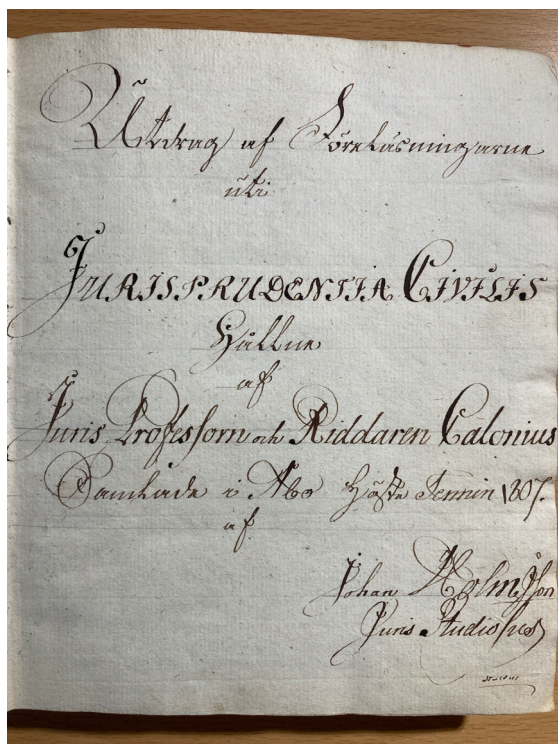 Utdrag af Föreläsningarne
uti
JURISPRUDENTIA CIVILIS
Hållne
af
Juris Professorn och Riddaren Calonius
Samlade i Åbo Höste Termin 1807.
af
Johan Holmsson
Juris Studiosus